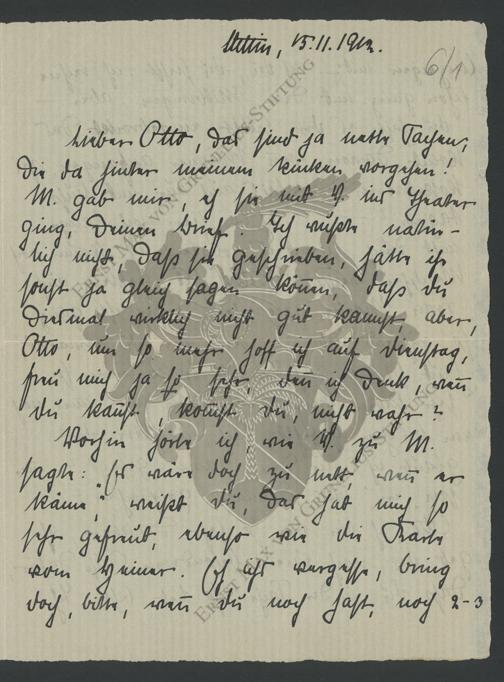 Stettin, 15.11.1912.
6/1
Lieber Otto, das sind ja nette Sachen,
die da hinter meinem Rücken vorgehen!
M. gab mir, eh sie mit V. ins Theater
ging, Deinen Brief. Ich wußte natür-
lich nicht, daß sie geschrieben, hätte ihr
sonst ja gleich sagen können, daß du
diesmal wirklich nicht gut kannst, aber,
Otto, um so mehr hoff ich auf Dienstag,
freu mich ja so sehr, denn ich denk, weñ
du kannst, kom̄st du, nicht wahr?
Vorhin hörte ich, wie V. zu M.
sagte: "Es wäre doch zu nett, weñ er
käme", weißt du, das hat mich so
sehr gefreut, ebenso wie die Karte
vom Heiner. Eh ichs vergesse, bring
doch, bitte, weñ du noch hast, noch 2-3
ERNST MAX VON GRUNELIUS-STIFTUNG
ERNST MAX VON GRUNELIUS-STIFTUNG